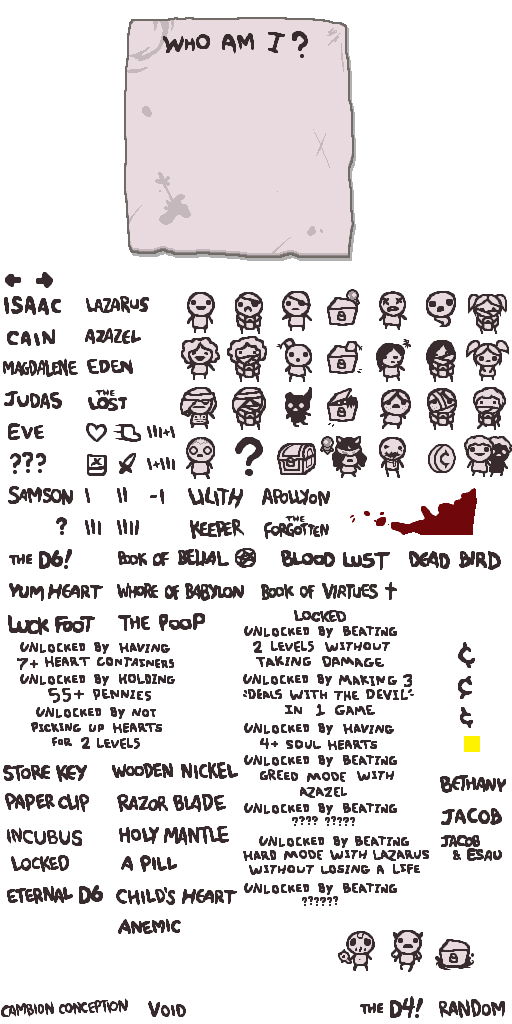 WHO AM I?
ISAAC LAZARUS
CAIN AZAZEL
MAGDALENE EDEN
JUDAS THE LOST
EVE |||+|
??? |+|||
?
SAMSON | || -| LILITH APOLLYON
? ||| |||| KEEPER THE FORGOTTEN
THE D6! BOOK OF BELIAL BLOOD LUST DEAD BIRD
YUM HEART WHORE OF BABYLON BOOK OF VIRTUES †
LUCK FOOT THE POOP
UNLOCKED BY HAVING
7+ HEART CONTAINERS
UNLOCKED BY HOLDING
55+ PENNIES
UNLOCKED BY NOT
PICKING UP HEARTS
FOR 2 LEVELS
LOCKED
UNLOCKED BY BEATING
2 LEVELS WITHOUT
TAKING DAMAGE
UNLOCKED BY MAKING 3
"DEALS WITH THE DEVIL"
IN 1 GAME
UNLOCKED BY HAVING
4+ SOUL HEARTS
UNLOCKED BY BEATING
GREED MODE WITH
AZAZEL
UNLOCKED BY BEATING
???? ?????
UNLOCKED BY BEATING
HARD MODE WITH LAZARUS
WITHOUT LOSING A LIFE
UNLOCKED BY BEATING
??????
¢
¢
¢
STORE KEY WOODEN NICKEL
PAPER CLIP RAZOR BLADE
INCUBUS HOLY MANTLE
LOCKED A PILL
ETERNAL D6 CHILD'S HEART
ANEMIC
BETHANY
JACOB
JACOB
& ESAU
CAMBION CONCEPTION VOID THE D4! RANDOM